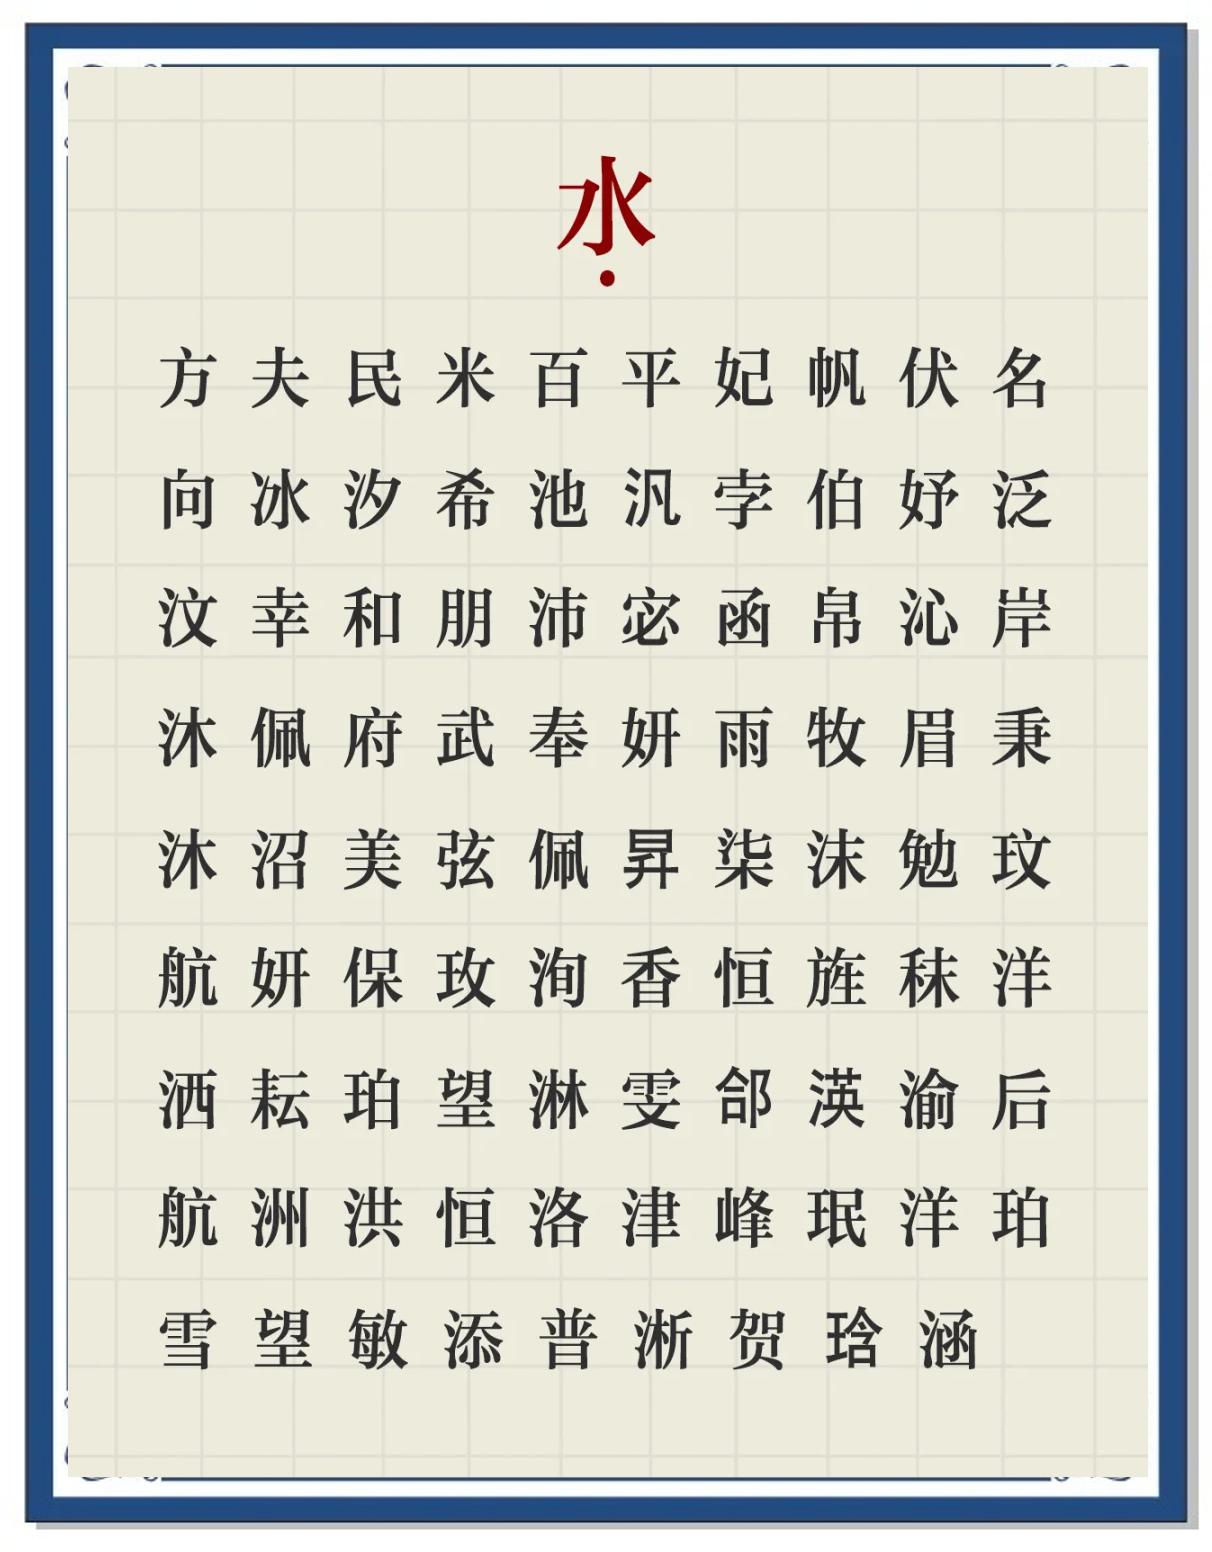 水
•
方 夫 民 米 百 平 妃 帆 伏 名
向 冰 汐 希 池 汎 孛 伯 妤 泛
汶 幸 和 朋 沛 宓 函 帛 沁 岸
沐 佩 府 武 奉 妍 雨 牧 眉 秉
沐 沼 美 弦 佩 昇 柒 沫 勉 玟
航 妍 保 玫 洵 香 恒 旌 秣 洋
洒 耘 珀 望 淋 雯 郃 渶 渝 后
航 洲 洪 恒 洛 津 峰 珉 洋 珀
雪 望 敏 添 普 淅 贺 琀 涵